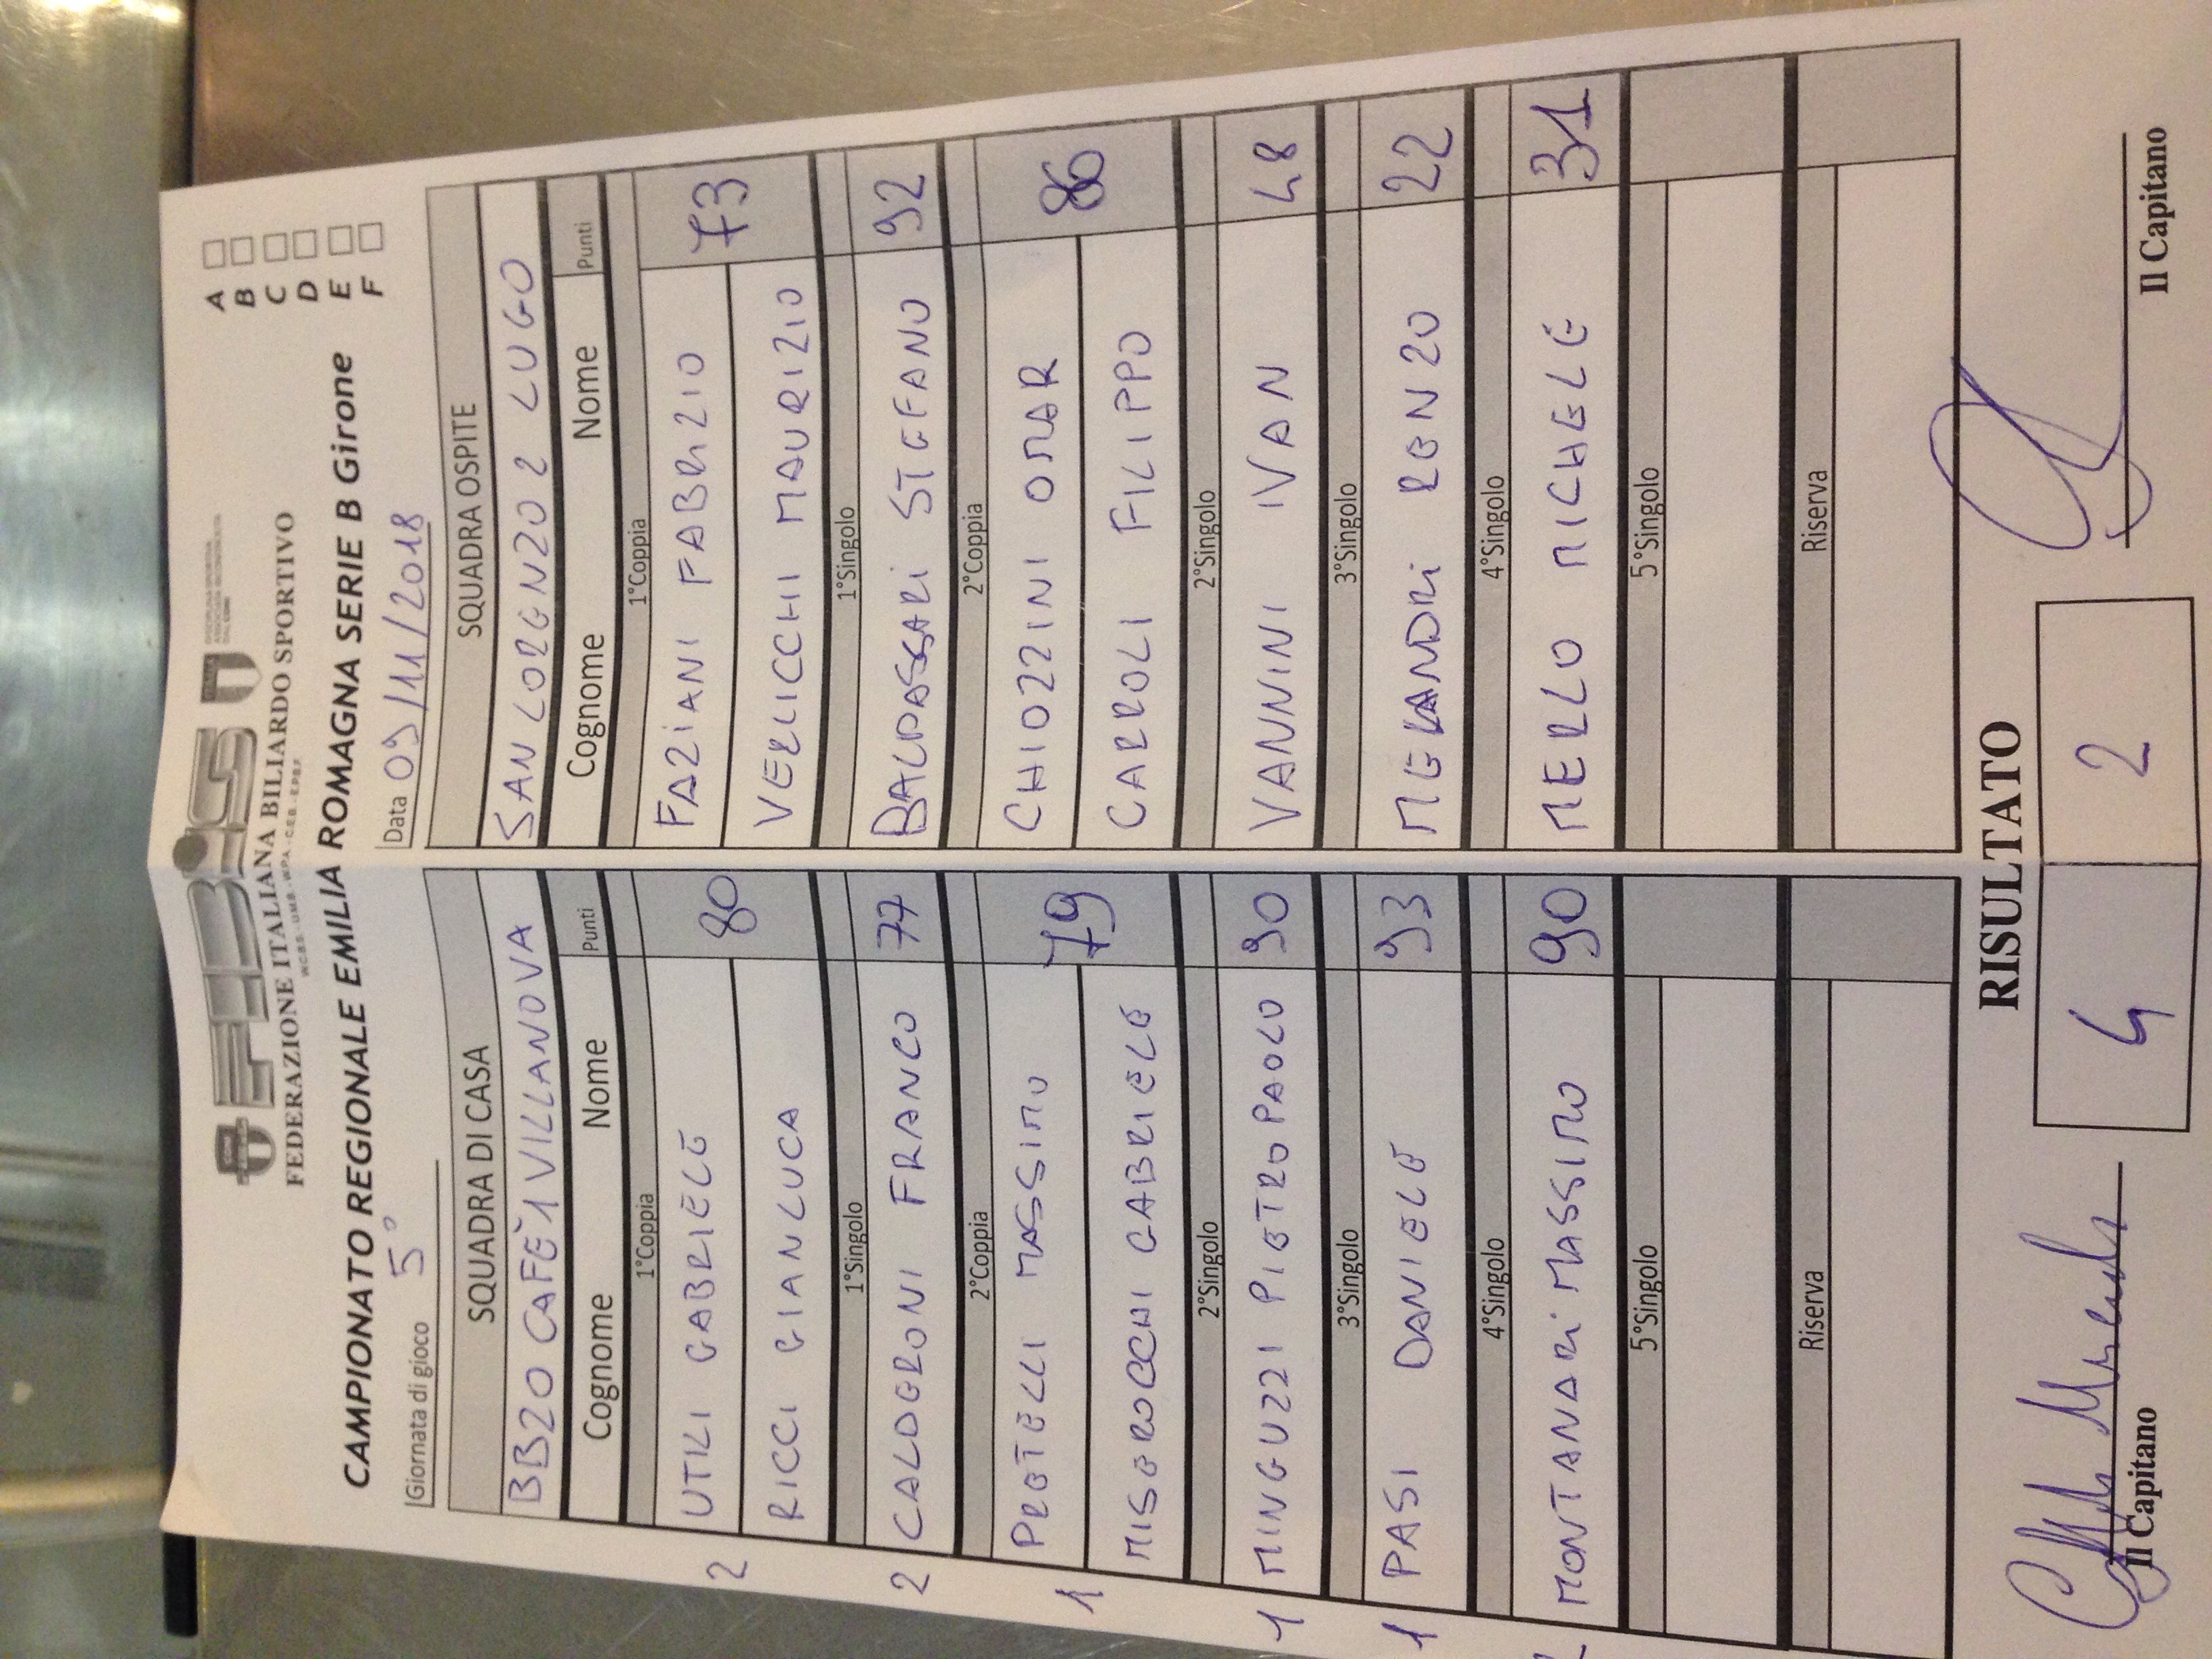 FEDERAZIONE ITALIANA BILIARDO SPORTIVO
CAMPIONATO REGIONALE EMILIA ROMAGNA SERIE B Girone
A
B
C
D
E
F
Giornata di gioco 5°
Data 09/11/2018
SQUADRA DI CASA
BB20 CAFÈ 1 VILLANOVA
Cognome Nome Punti
1°Coppia
2 UTILI GABRIELE 80
RICCI GIANLUCA
1°Singolo
2 CALDERONI FRANCO 77
2°Coppia
1 PRETELLI MASSIMO 79
MISEROCCHI GABRIELE
2°Singolo
1 MINGUZZI PIETROPAOLO 90
3°Singolo
1 PASI DANIELE 93
4°Singolo
MONTANARI MASSIMO 90
5°Singolo
Riserva
SQUADRA OSPITE
SAN LORENZO 2 LUGO
Cognome Nome Punti
1°Coppia
FAZIANI FABRIZIO 73
VERLICCHI MAURIZIO
1°Singolo
BALDASSARI STEFANO 92
2°Coppia
CHIOZZINI OMAR 86
CARROLI FILIPPO
2°Singolo
VANNINI IVAN 48
3°Singolo
MELANDRI RENZO 22
4°Singolo
MERLO MICHELE 31
5°Singolo
Riserva
RISULTATO
4 2
Il Capitano
Il Capitano